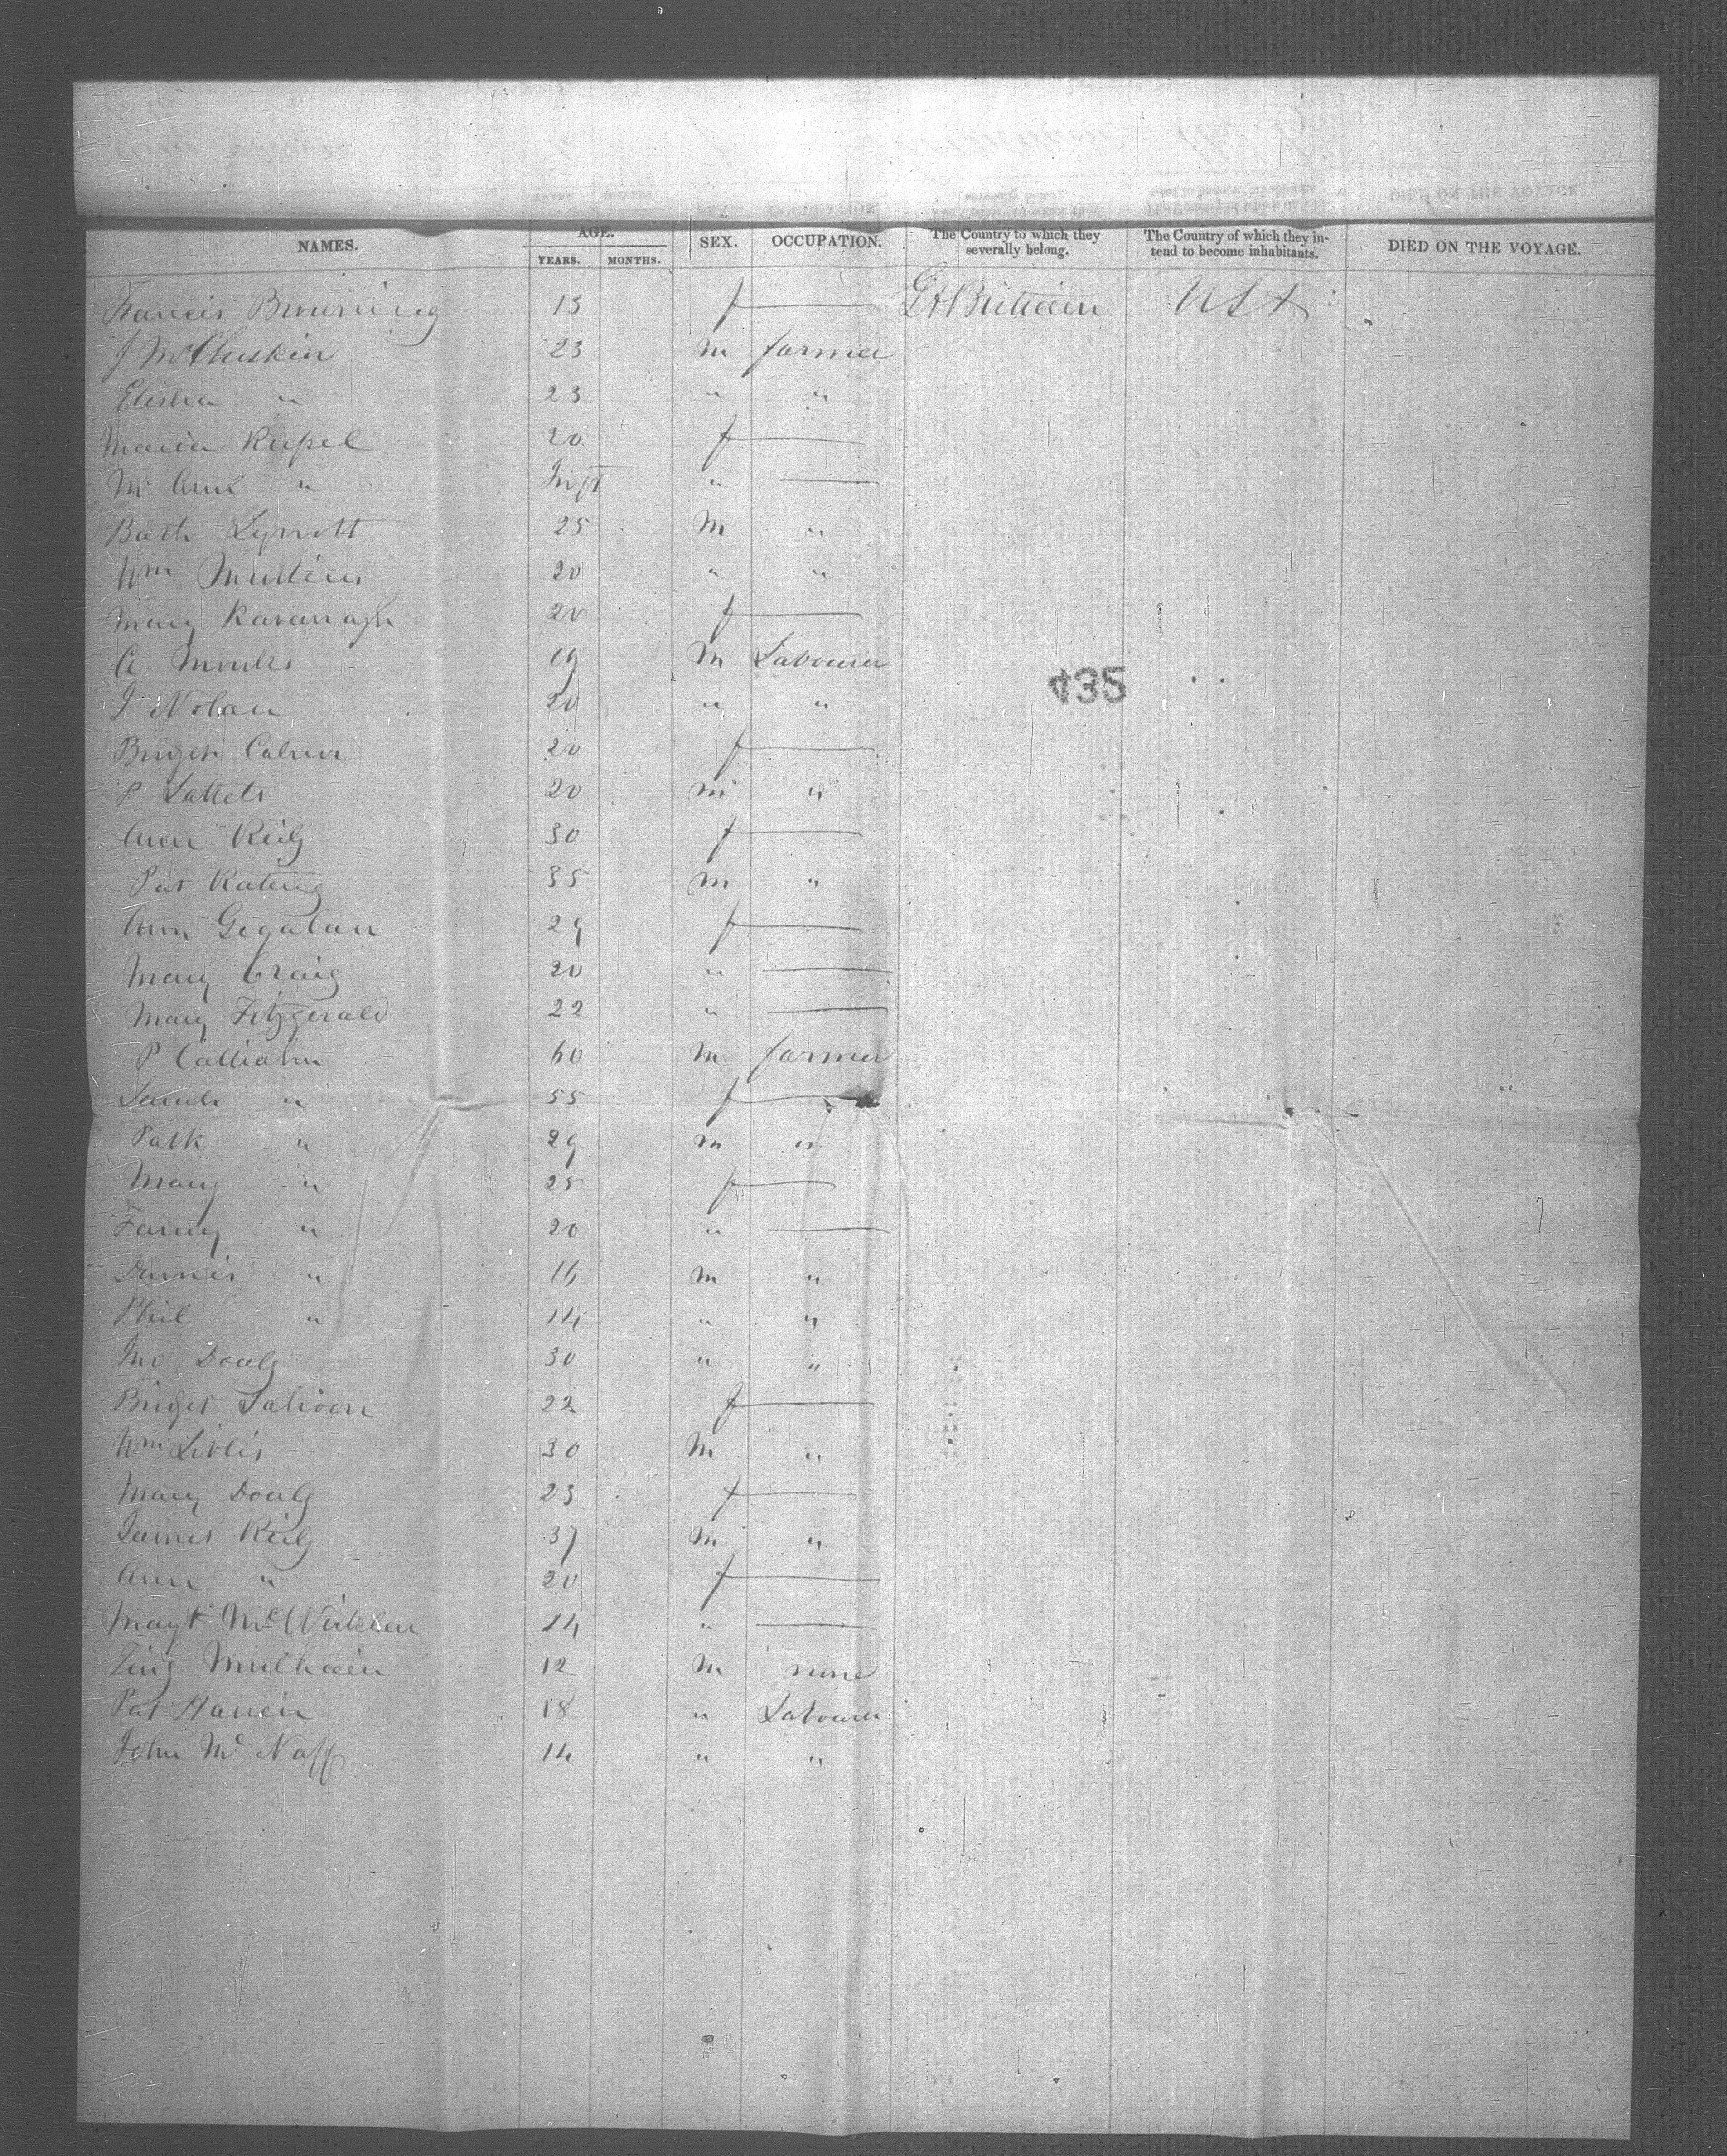 NAMES. AGE. YEARS. MONTHS. SEX. OCCUPATION. The Country to which they severally belong. The Country of which they intend to become inhabitants. DIED ON THE VOYAGE.
Francis Browning 13 f — Gt Brittain USA
J McCluskin 23 m farmer
Elisha " 23 " "
Maria 20 f —
M Ann " Inft " —
Barth Lynott 25 M "
Wm Mullins 20 " "
Mary Kavanagh 20 f —
A Monks 19 M Labourer
J Nolan 20 " "
435
Briget 20 f —
P 20 m "
Ann Reily 30 f —
Pat Kating 35 m "
Ann Gegalan 29 f —
Mary Craig 20 " —
Mary Fitzgerald 22 " —
P Calliahn 60 M farmer
Sarah " 55 f —
Patk " 29 m "
Mary " 25 f —
Fanny " 20 " —
" 16 m "
Phil " 14 " "
Jno Douly 30 " "
Briget 22 f —
Wm 30 M "
Mary Douly 23 f —
James Reily 37 M "
Ann " 20 f —
Mayt Mc 14 " —
Mulhain 12 M none
Pat 18 " Labourer
John Mc Naff 14 " "